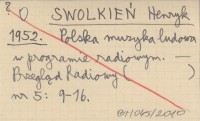 ? O SWOLKIEŃ Henryk
1952. Polska muzyka ludowa
w programie radiowym. —
Przegląd Radiowy ( )
nr 5: 9-16.